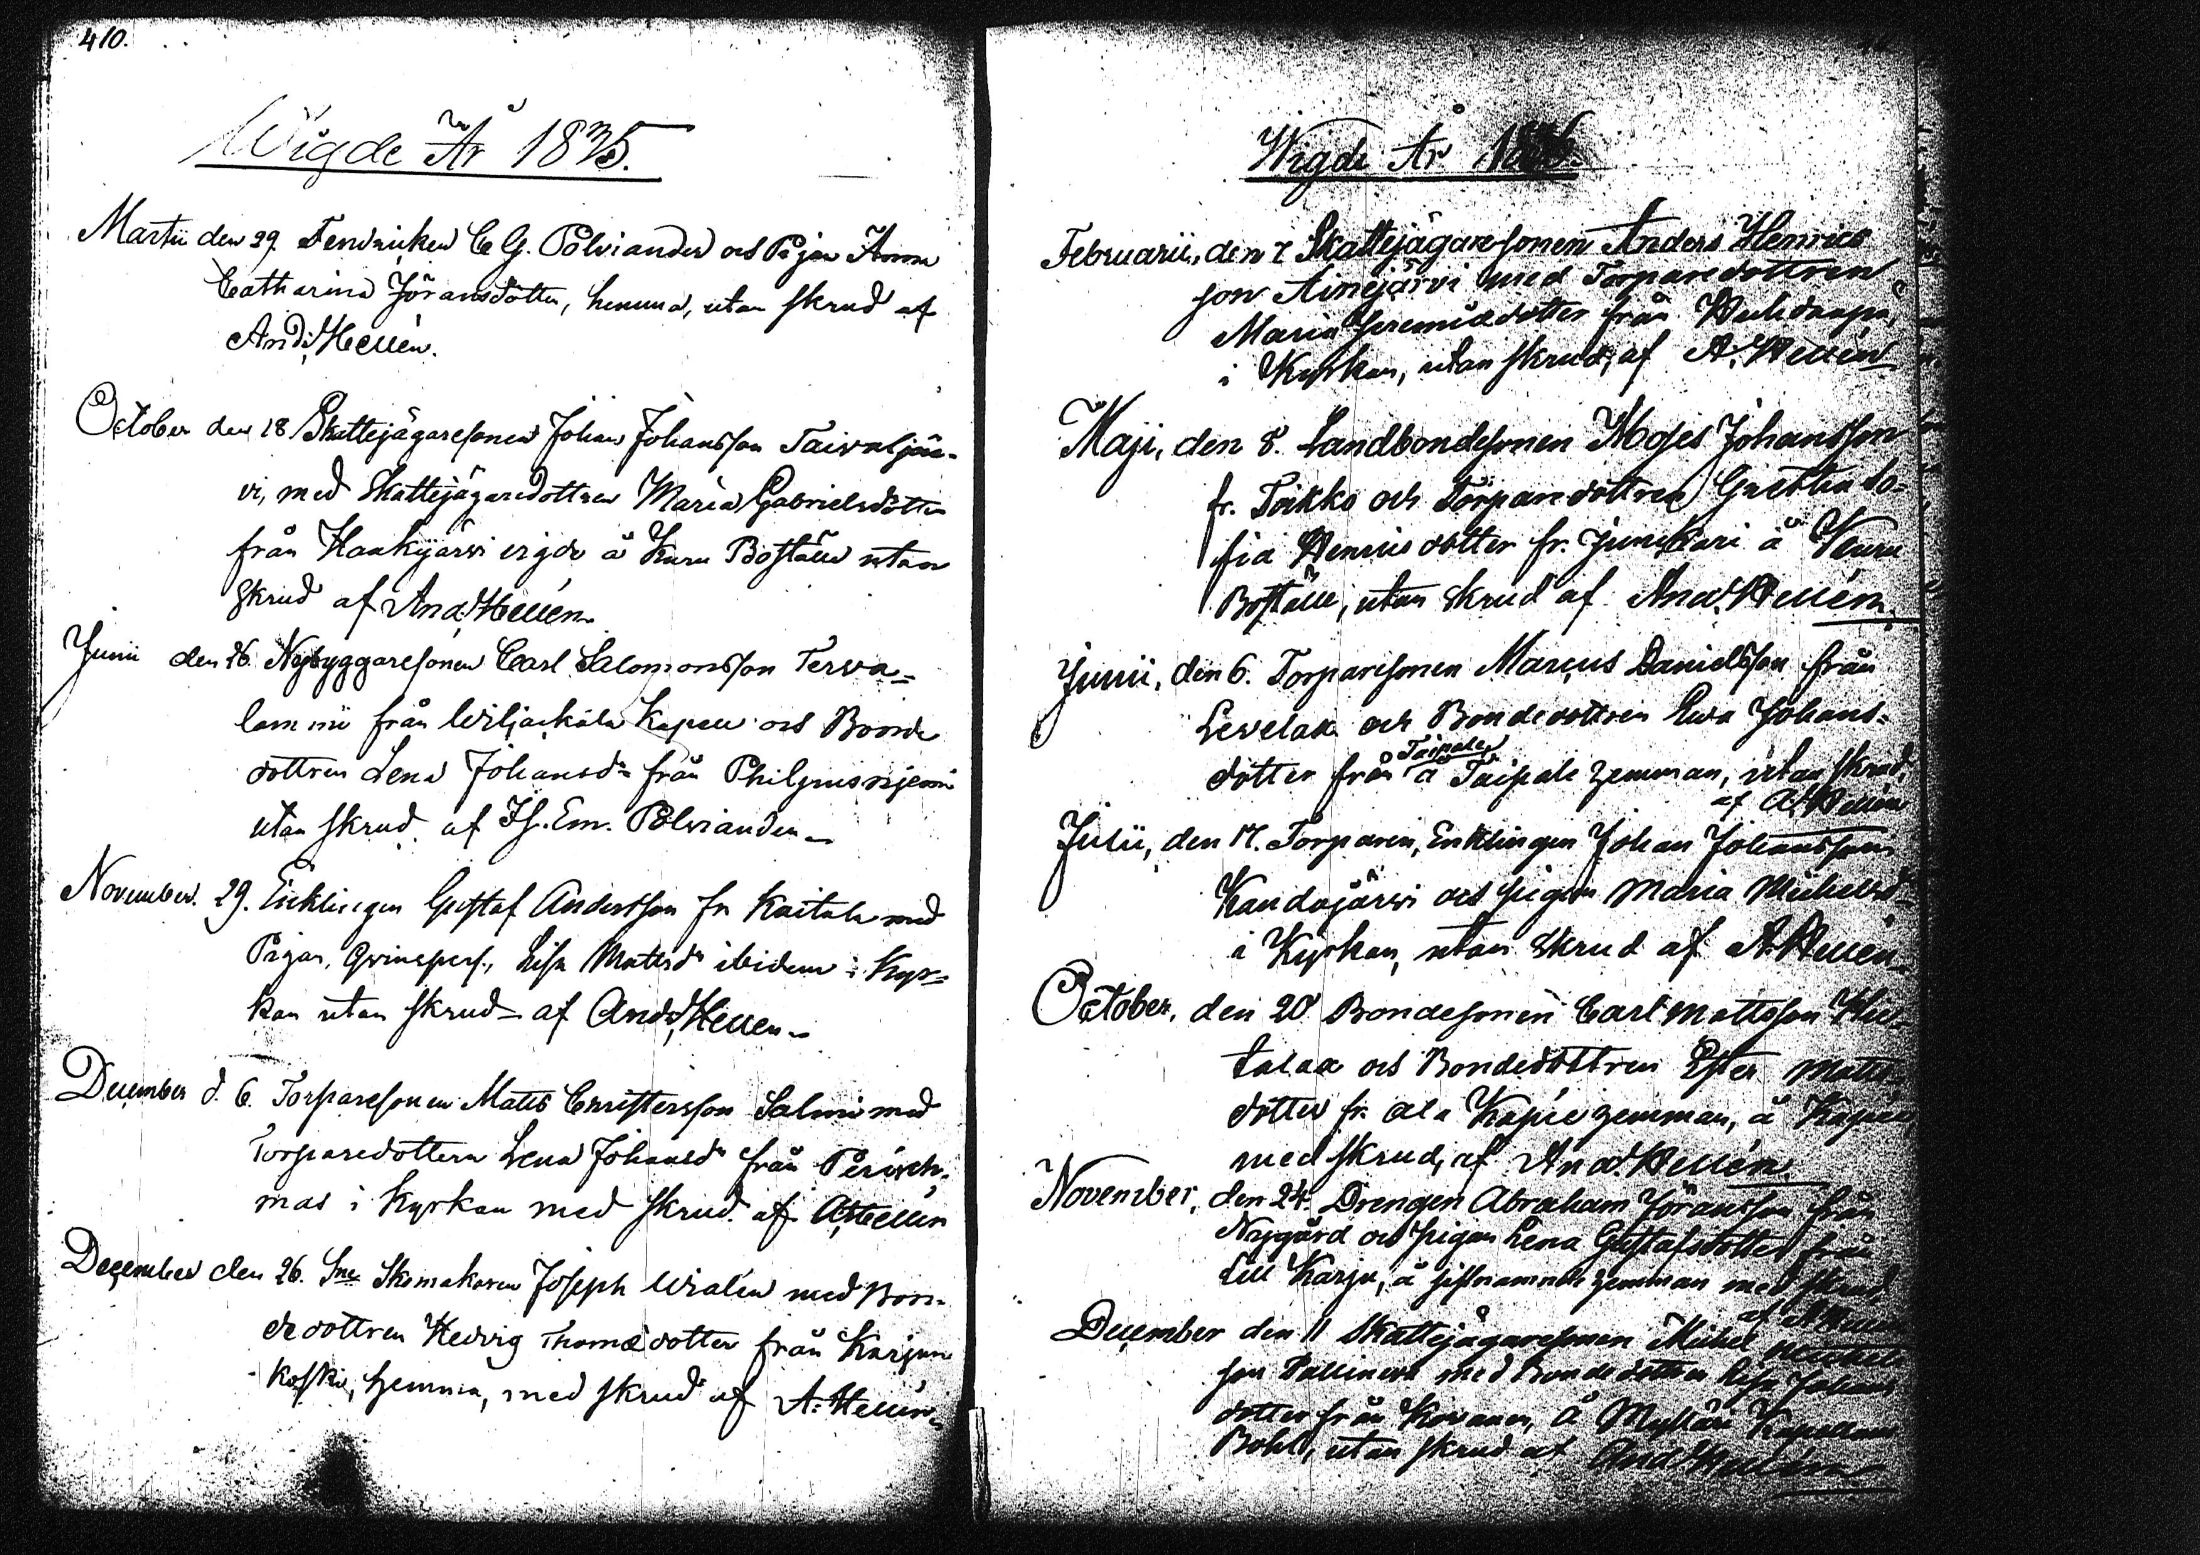 410.
Wigde År 1835.
Martii den 29. Fendricken C. G. Polviander och Pigan Anna
Catharina Jöransdotter, hemma, utan skrud af
And. Hellén.
October den 18 Skattejägaresonen Johan Johansson Taivaljär-
vi, med Skattejägaredottren Maria Gabrielsdotter
från Haukijärvi vigde å Kuru Boställe utan
Skrud af And. Hellén
Junii den 26. Nybyggaresonen Carl Salomonsson Terva-
lammi från Wiljakkala Kapell och Bonde
dottren Lena Johansdr från Philpusniemi
utan skrud. af Is. Em. Polviander
November. 29. Encklingen Gustaf Andersson fr. Kaitala med
Pigan, Qvinspers., Lisa Mattsdr ibidem i Kyr-
kan utan skrud af And. Hellen
December d. 6. Torparesonen Matts Christersson Salmi med
Torparedottern Lena Johansdr från
mas i Kyrkan med skrud. af A. Hellén
December den 26. Skomakaren Joseph Wialén med Bon-
dedottren Hedvig Thomædotter från Karjun
koski, hemma, med skrud af A. Hellén
Wigde År
Februarii, den 7 Skattejägaresonen Anders Henrics
son Ainejärvi med Torparedottren
Maria Jeremiædotter från
i Kyrkan, utan skrud, af A. Hellén
Maji, den 8. Landbondesonen Moses Johansson
fr. Poikko och Torparedottren Greta So-
fia Henricsdotter fr. Junkkari å Kuru
Boställe, utan skrud af And. Hellén.
Junii, den 6. Torparesonen Marcus Danielsson från
Levelax och Bondedottren Ewa Johans-
Taipale
dotter från å Taipale hemman, utan skrud,
af A. Hellén
Julii, den 17. Torparen, Enklingen Johan Johansson
Kandojärvi och pigan Maria Michelsd
i Kyrkan, utan skrud af A. Hellén
October, den 20 Bondesonen Carl Mattsson
talaa och Bondedottren Ester Matts
dotter fr. Ala Kapee hemman, å Kapee
med skrud, af And. Hellén.
November, den 24. Drengen Abraham Jöransson från
Nygård och pigan Lena Gustafsdotter från
Lill Karju, å sistnämnde hemman med skrud
af A. Hellén
December den 11 Skattejägaresonen Michel Michels
son Pallineva med Bondedottren Lisa Johans
dotter från Kovanen, å Myllärs Kapellans
Bohl, utan skrud af And. Hellén